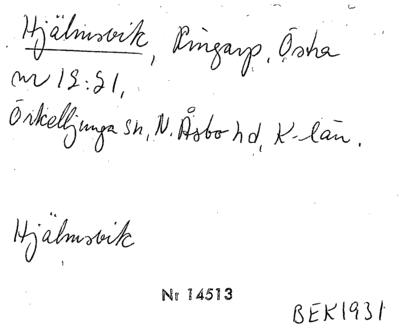 Hjälmsvik, Ringarp, Östra
nr 12:21,
Örkelljunga sn, N. Åsbo hd, K-län.
Hjälmsvik
Nr 14513
BEK1931